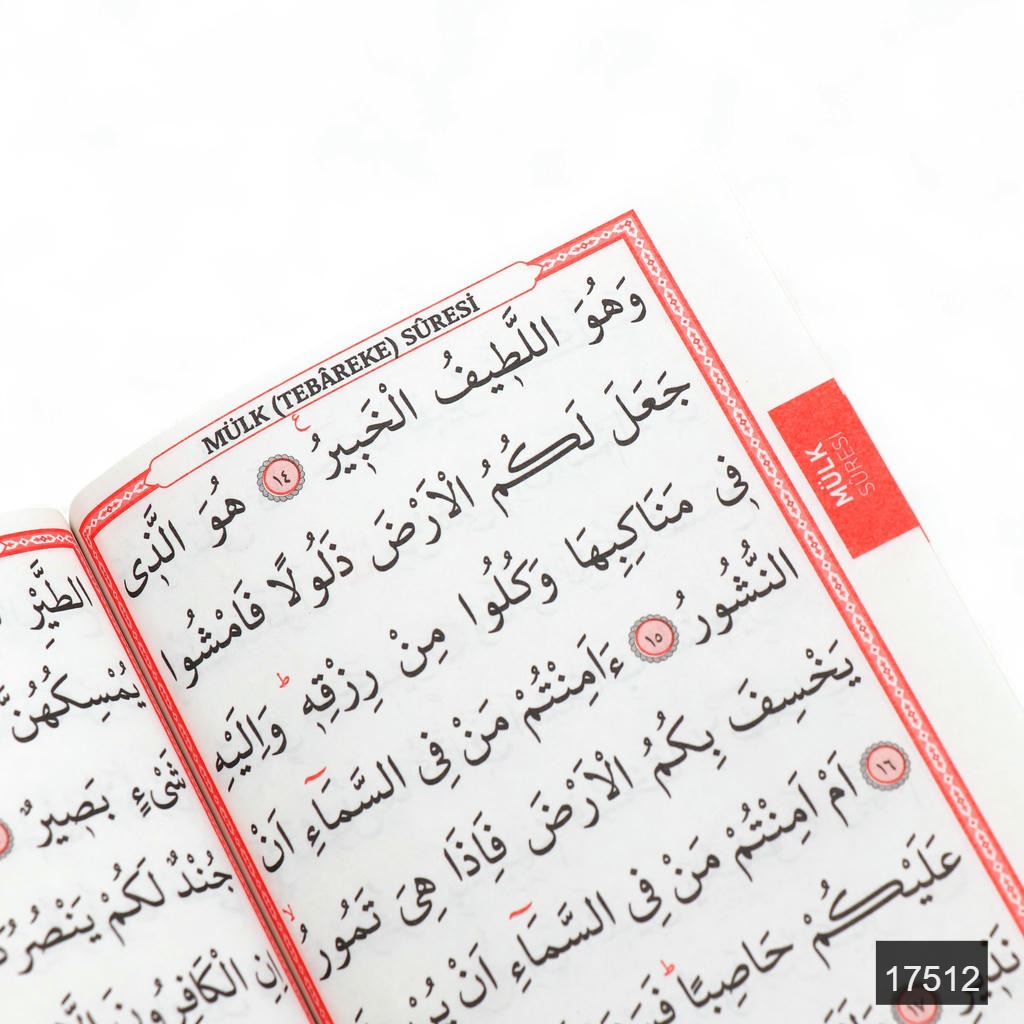 MÜLK (TEBÂREKE) SÛRESİ
وَهُوَ اللَّطٖيفُ الْخَبٖيرُ ﴿١٤﴾ هُوَ الَّذٖى
جَعَلَ لَكُمُ الْاَرْضَ ذَلُولًا فَامْشُوا
فٖى مَنَاكِبِهَا وَكُلُوا مِنْ رِزْقِهٖ وَاِلَيْهِ
النُّشُورُ ﴿١٥﴾ ءَاَمِنْتُمْ مَنْ فِى السَّمَاءِ اَنْ
يَخْسِفَ بِكُمُ الْاَرْضَ فَاِذَا هِىَ تَمُورُ
﴿١٦﴾ اَمْ اَمِنْتُمْ مَنْ فِى السَّمَاءِ اَنْ
عَلَيْكُمْ حَاصِبًا
MÜLK
SÛRESİ
الطَّيْرِ
يُمْسِكُهُنَّ
شَىْءٍ بَصٖيرٌ
جُنْدٌ لَكُمْ
اِنِ الْكَافِرُونَ
17512